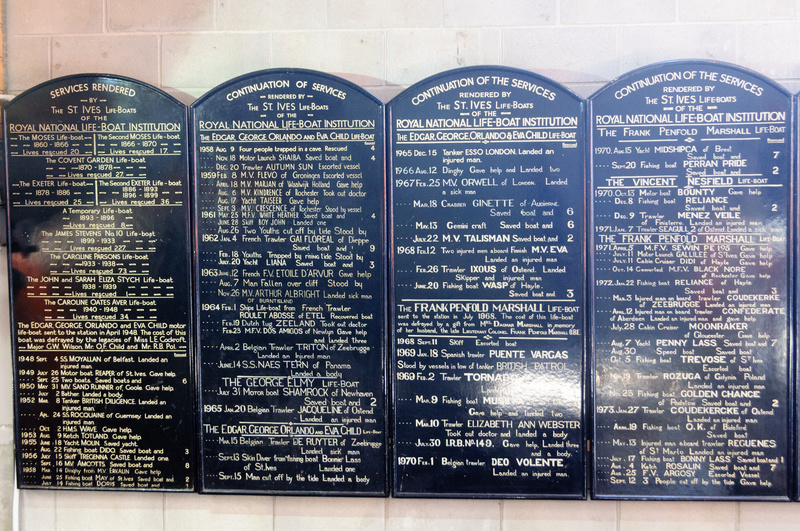 SERVICES RENDERED
BY
THE ST. IVES LIFE-BOATS
OF THE
ROYAL NATIONAL LIFE-BOAT INSTITUTION
The MOSES Life-boat
1860 — 1866
Lives rescued 20
The Second MOSES Life-boat
1866 — 1870
Lives rescued 17
The COVENT GARDEN Life-boat
1870 — 1878
Lives rescued 27
The EXETER Life-boat
1878 — 1886
Lives rescued 25
The Second EXETER Life-boat
1886 — 1893
1896 — 1899
Lives rescued 36
A Temporary Life-boat
1893 — 1896
Lives rescued 8
The JAMES STEVENS No.10 Life-boat
1899 — 1933
Lives rescued 227
The CAROLINE PARSONS Life-boat
1933 — 1938
Lives rescued 73
The JOHN and SARAH ELIZA STYCH Life-boat
1938 — 1939
The CAROLINE OATES AVER Life-boat
1940 — 1948
Lives rescued
The EDGAR, GEORGE, ORLANDO and EVA CHILD motor
life-boat sent to the station in April 1948. The cost of this
boat was defrayed by the legacies of Miss L.E. Godfroft,
Major G.W. Wilson, Mr. O.F. Child and Mr. R.B. Pol
1948 Sept S.S. MOYALLAN of Belfast. Landed an
injured man.
1949 July 26 Motor boat REAPER of St. Ives. Gave help
Sept 25 Two boats. Saved boats and 6
1950 May 31 MV SAND RUNNER of Goole Gave help
July 2 Bather Landed a body
1952 Mar 8 Tanker BRITISH DILIGENCE Landed an
injured man.
Apr. 24 S.S. ROCQUAINE of Guernsey Landed an
injured man.
Oct 2 H.M.S. WAVE Gave help
1953 Aug 9 Ketch TOTLAND. Gave help
1955 Jan 18 Yacht MOLIN. Saved yacht.
Aug 22 Fishing boat DIDO Saved boat and 3
1956 July 15 Skiff TRIGENNA CASTLE Landed one
Sept 16 M.V. AMCOTTS Saved boat and 8
1958 Mar 14 Dinghy from M.V. ERMLIN Gave help
June 25 Fishing boat MAY of St. Ives Saved boat and 2
July 19 Fishing boat DORIS Saved boat and
CONTINUATION OF SERVICES
RENDERED BY
THE ST. IVES LIFE-BOATS
OF THE
ROYAL NATIONAL LIFE-BOAT INSTITUTION
THE EDGAR, GEORGE, ORLANDO AND EVA CHILD LIFE-BOAT
1958 Aug 9 Four people trapped in a cave. Rescued
Nov 18 Motor Launch SHAIBA Saved boat and 4
Dec 20 Trawler AUTUMN SUN Escorted vessel
1959 Feb 8 M.V. FLEVO of Groningen Escorted vessel
April 18 M.V. MARIAN of Watsweer Holland Gave help
Aug 6 M.V. KINDRENCE of Rochester Took out doctor
Aug 17 Yacht TAISEER Gave help
Sept 3 M.V. CRESCENCE of Rochester Stood by vessel
1961 May 25 M.F.V. WHITE HEATHER Saved boat and 4
June 28 Skiff BOY JOHN Landed one
Aug 26 Two Youths cut off by tide Stood by
1962 Jan 4 French Trawler GAI FLOREAL of Dieppe
Saved boat and 9
Feb 18 Youths Trapped by rising tide Stood by
July 20 Yacht LIANA Saved boat and 3
1963 June 12 French F.V. ETOILE D'ARVUR Gave help
Aug 7 Man Fallen over cliff Stood by
Nov 26 M.V. ARTHUR ALBRIGHT Landed sick man
OF BURNTISLAND
1964 Feb 1 Ships Life-boat from French Trawler
ROULET ABOSSE of ETEL Recovered boat
Feb 19 Dutch tug ZEELAND Took out doctor
Feb 23 M.F.V. DOS AMIGOS of Newlyn Gave help
and landed three
April 2 Belgian Trawler TRITON of Zeebrugge
Landed an injured man
June 14 S.S. NAES TERN of Panama
Landed a body
THE GEORGE ELMY LIFE-BOAT
July 31 Motor boat SHAMROCK of Newhaven
Saved boat and 2
1965 Jan 20 Belgian Trawler JACQUELINE of Ostend
Landed an injured man
THE EDGAR, GEORGE, ORLANDO AND EVA CHILD LIFE-BOAT
Mar 15 Belgian Trawler DE RUYTER of Zeebrugge
Landed sick man
Sept 13 Skin Diver from fishing boat Bonnie Lass
of St. Ives Landed one
Sept 15 Man cut off by the tide Landed a body
CONTINUATION OF THE SERVICES
RENDERED BY
THE ST. IVES LIFE-BOATS
OF THE
ROYAL NATIONAL LIFE-BOAT INSTITUTION
THE EDGAR, GEORGE, ORLANDO & EVA CHILD LIFE-BOAT
1965 Dec 15 Tanker ESSO LONDON. Landed an
injured man.
1966 Aug 12 Dinghy Gave help and Landed two
1967 Feb 25 M.V. ORWELL of London. Landed
a sick man
Mar 18 Crabber GINETTE of Audierne.
Saved boat and 6
May 13 Gemini craft Saved boat and 6
July 22 M.V. TALISMAN Saved boat and 2
1968 Feb 12 Two injured men aboard Finnish M.V. EVA
Landed an injured man
Feb 26 Trawler IXOUS of Ostend. Landed
Skipper and injured man
June 20 Fishing boat WASP of Hayle.
Saved boat and 3
THE FRANK PENFOLD MARSHALL LIFE-BOAT
sent to the station in July 1968. The cost of this life-boat
was defrayed by a gift from Mrs Dagmar Marshall in memory
of her husband, the late Lieutenant Colonel Frank Penfold Marshall OBE
1968 Sept 11 Skiff Escorted boat
1969 Jan 18 Spanish trawler PUENTE VARGAS
Stood by vessels in tow of tanker BRITISH PATROL
1969 Feb 2 Trawler
Mar 9 Fishing boat
Gave help and landed two
Mar 10 Trawler ELIZABETH ANN WEBSTER
Took out doctor and landed a body
Jan 30 I.R.B. No. 49. Gave help, Landed three
and a body.
1970 Feb 1 Belgian trawler DEO VOLENTE.
Landed an injured man.
CONTINUATION OF THE SERVICES
RENDERED BY
THE ST. IVES LIFE-BOATS
OF THE
ROYAL NATIONAL LIFE-BOAT INSTITUTION
THE FRANK PENFOLD MARSHALL LIFE-BOAT
1970 Aug 15 Yacht MIDSHIPCA of Brest
Saved boat and 7
Sept 20 Fishing boat PERRAN PRIDE
Saved boat and 2
THE VINCENT NESFIELD LIFE-BOAT
1970 Oct 13 Motor boat BOUNTY Gave help
Dec 8 Fishing boat RELIANCE
Saved boat and 2
Dec 9 Trawler MENEZ VEILE
of Finisterre Landed an injured man
1971 Jan 7 Trawler SEAGULL 2 of Ostend Landed a sick man
THE FRANK PENFOLD MARSHALL LIFE-BOAT
1971 April 3 M.F.V. SEVWN PEYRS Gave help
July 11 Motor Launch GALILLEE of St Ives Gave help
July 11 Cabin Cruiser DIDI of Hayle Gave help
Oct 14 Converted M.F.V. BLACK NORE
of Rochester Gave help
1972 Jan 22 Fishing boat RELIANCE of Hayle
Saved boat and 3
Mar 3 Injured man on board Trawler COUDEKERKE
of ZEEBRUGGE Landed an injured man
April 12 Injured man on board Trawler CONFEDERATE
of Aberdeen Landed an injured man and gave help
July 28 Cabin Cruiser MOONRAKER
of Gloucester Gave help
Aug 7 Yacht PENNY LASS Saved boat and 7
Aug 30 Speed boat Saved boat
Oct 5 Fishing boat TREVOSE of St Ives
Escorted boat
Trawler ROZUGA of Gdynia Poland
Landed an injured man
25 Fishing boat GOLDEN CHANCE
of Padstow Saved boat and 2
1973 Jan 27 Trawler COUDEKERKE of Ostend
Landed an injured man
April 19 Fishing boat O.K. of Bideford
Saved boat and
May 13 Injured man aboard trawler REQUENES
of St Marlo Landed an injured man
July 17 Fishing boat BONNY LASS Saved boat and 1
Aug 4 Ketch ROSALIN Saved boat and 7
Aug 28 F.V. ARGOSY Escorted Vessel
Sept 12 3 People cut off by the tide Gave help